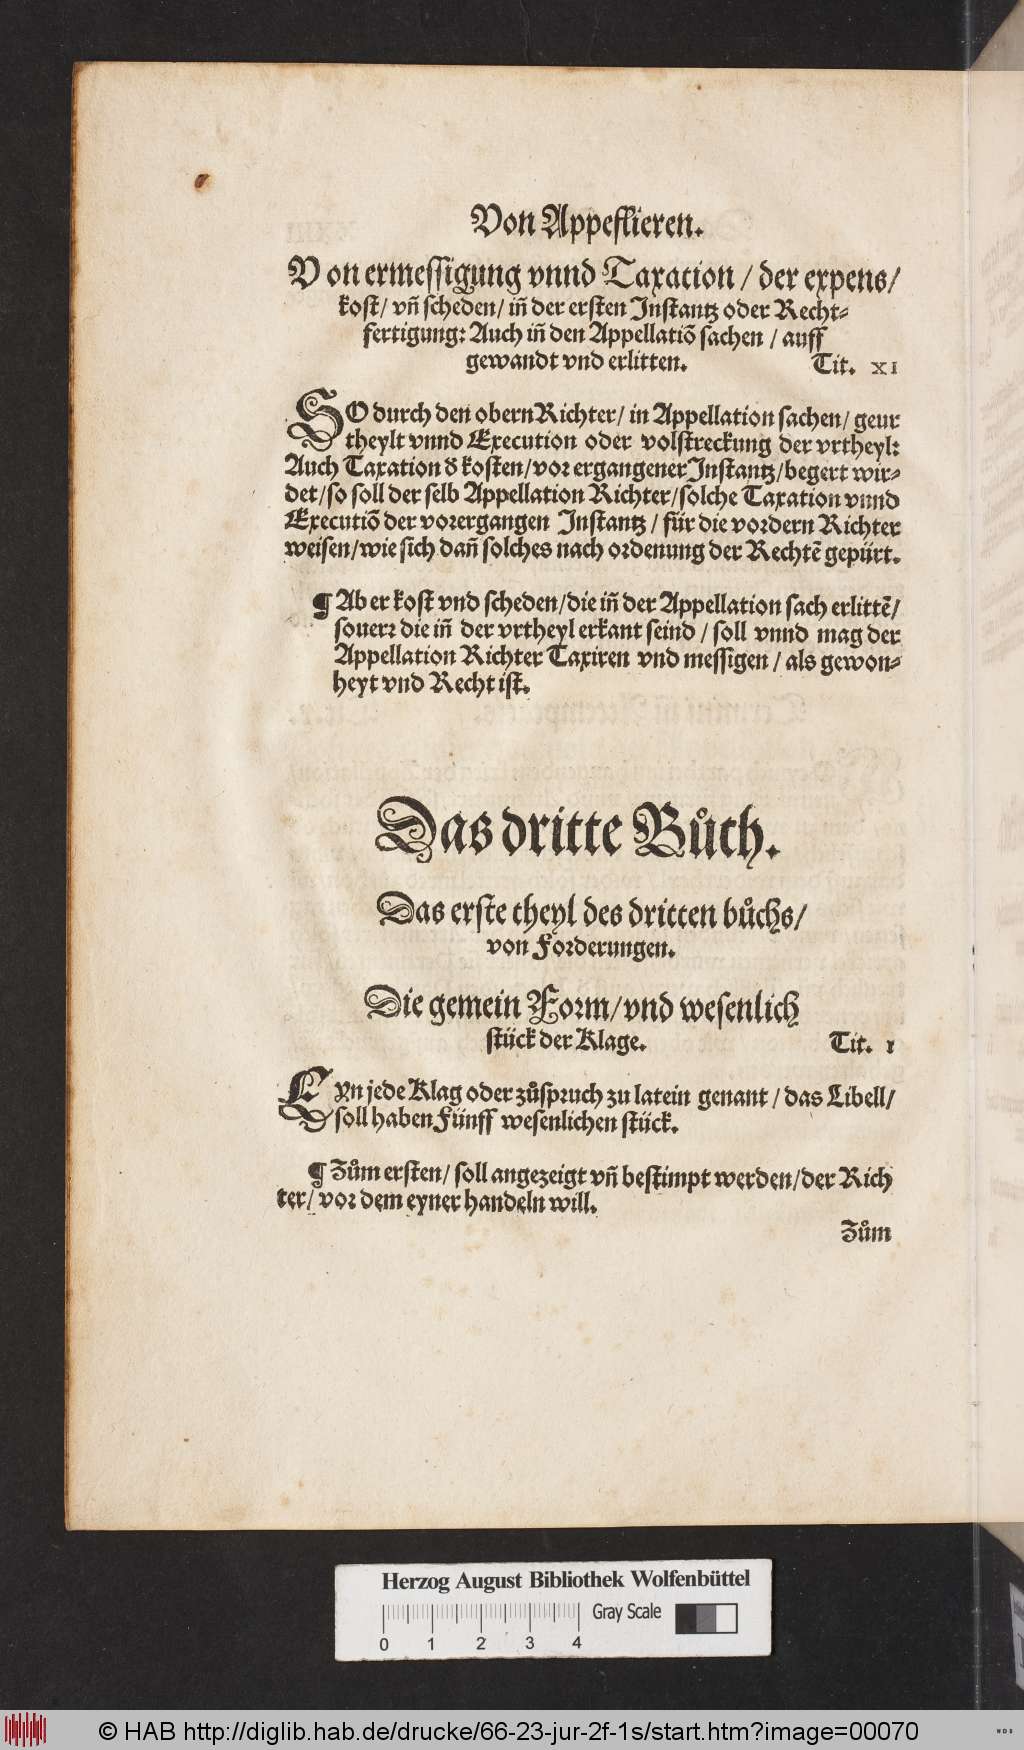 Von Appellieren.
Von ermessigung vnnd Taxation / der expens /
kost / vñ scheden / iñ der ersten Instantz oder Recht⸗
fertigung: Auch iñ den Appellatiõ sachen / auff
gewandt vnd erlitten. Tit. XI
SO durch den obern Richter / in Appellation sachen / geur
theylt vnnd Execution oder volstreckung der vrtheyl:
Auch Taxation d̕ kosten / vor ergangener Instantz / begert wir⸗
det / so soll der selb Appellation Richter / solche Taxation vnnd
Executiõ der vorergangen Instantz / für die vordern Richter
weisen / wie sich dañ solches nach ordenung der Rechtẽ gepürt.
¶ Aber kost vnd scheden / die iñ der Appellation sach erlittẽ /
souerꝛ die iñ der vrtheyl erkant seind / soll vnnd mag der
Appellation Richter Taxiren vnd messigen / als gewon⸗
heyt vnd Recht ist.
Das dritte Bůch.
Das erste theyl des dritten bůchs /
von Forderungen.
Die gemein Form / vnd wesenlich
stück der Klage. Tit. I
EYn jede Klag oder zůspruch zu latein genant / das Libell /
soll haben Fünff wesenlichen stück.
¶ Zům ersten / soll angezeigt vñ bestimpt werden / der Rich
ter / vor dem eyner handeln will.
Zům
Herzog August Bibliothek Wolfenbüttel
Gray Scale
0 1 2 3 4
© HAB http://diglib.hab.de/drucke/66-23-jur-2f-1s/start.htm?image=00070
WDB